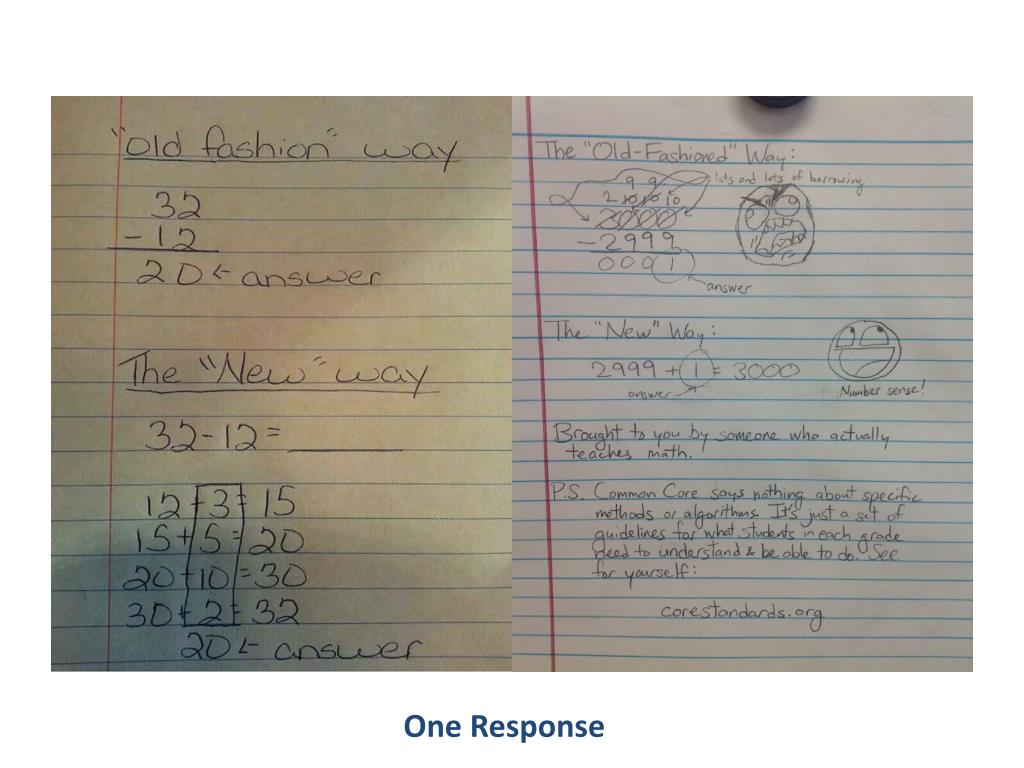 "Old fashion" way
32
- 12
20 ← answer
The "New" way
32-12= ______
12 + 3 = 15
15 + 5 = 20
20 + 10 = 30
30 + 2 = 32
20 ← answer
The "Old-Fashioned" Way:
lots and lots of borrowing
9 9
2 10 10 10
3000
- 2999
0001
answer
The "New" Way:
2999 + 1 = 3000
answer
Number sense!
Brought to you by someone who actually
teaches math.
P.S. Common Core says nothing about specific
methods or algorithms. It's just a set of
guidelines for what students in each grade
need to understand & be able to do. See
for yourself:
corestandards.org
One Response